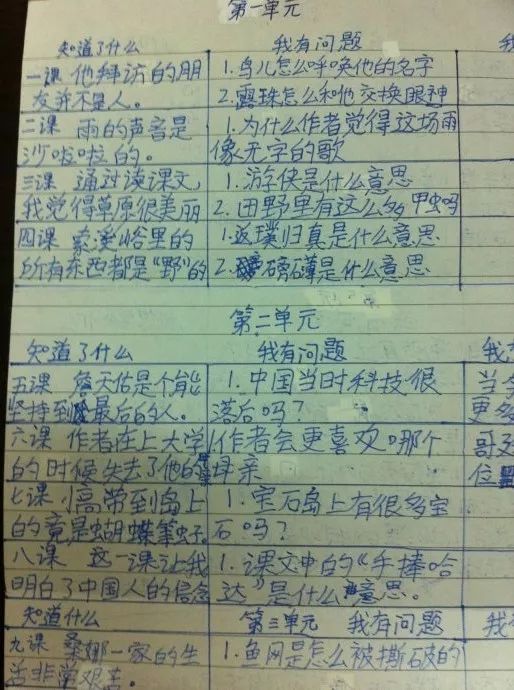 第一单元
知道了什么 我有问题 我
一课 他拜访的朋 1.鸟儿怎么呼唤他的名字
友并不是人。 2.露珠怎么和他交换眼神
二课 雨的声音是 1.为什么作者觉得这场雨
沙啦啦的。 像无字的歌
三课 通过读课文, 1.游侠是什么意思
我觉得草原很美丽 2.田野里有这么多甲虫吗
四课 索溪峪里的 1.返璞归真是什么意思
所有东西都是“野”的 2.磅礴是什么意思
第二单元
知道了什么 我有问题 我
五课 詹天佑是个能 1.中国当时科技很 当
坚持到最后的人。 落后吗? 更多
六课 作者在上大学 作者会更喜欢哪个
的时候失去了他的 母亲 位
七课 小高带到岛上 1.宝石岛上有很多宝
的竟是蝴蝶等虫子 石吗?
八课 这一课让我 1.课文中的“手捧哈
明白了中国人的信念 达”是什么意思。
知道什么 第三单元 我有问题 我
九课 桑娜一家的生 1.鱼网是怎么被撕破的
活非常艰苦。